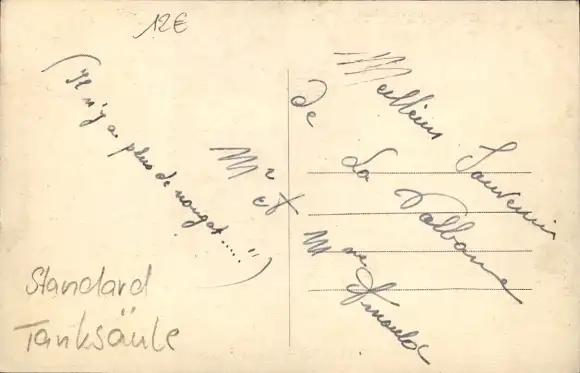 12€
(Il n'y a plus de nougat.....")
Meilleur Souvenir
de La Valbonne
Mr et Mme
Standard
Tanksäule